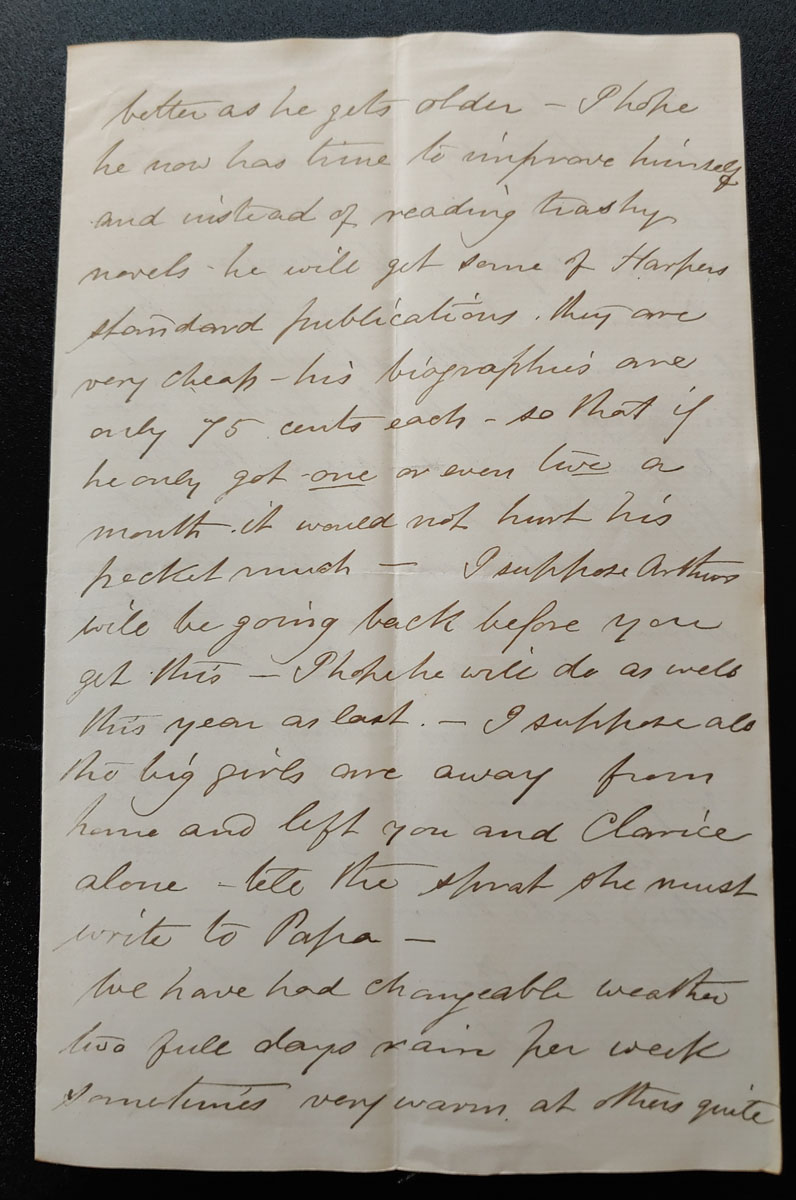 better as he gets older - I hope
he now has time to improve himself
and instead of reading trashy
novels - he will get some of Harpers
standard publications. they are
very cheap - his biographies are
only 75 cents each - so that if
he only got one or even two a
month it would not hurt his
pocket much - I suppose Arthur
will be going back before you
get this - I hope he will do as well
this year as last. - I suppose all
the big girls are away from
home and left you and Clarice
alone - tell the sprat she must
write to Papa -
We have had changeable weather
two full days rain per week
sometimes very warm at others quite